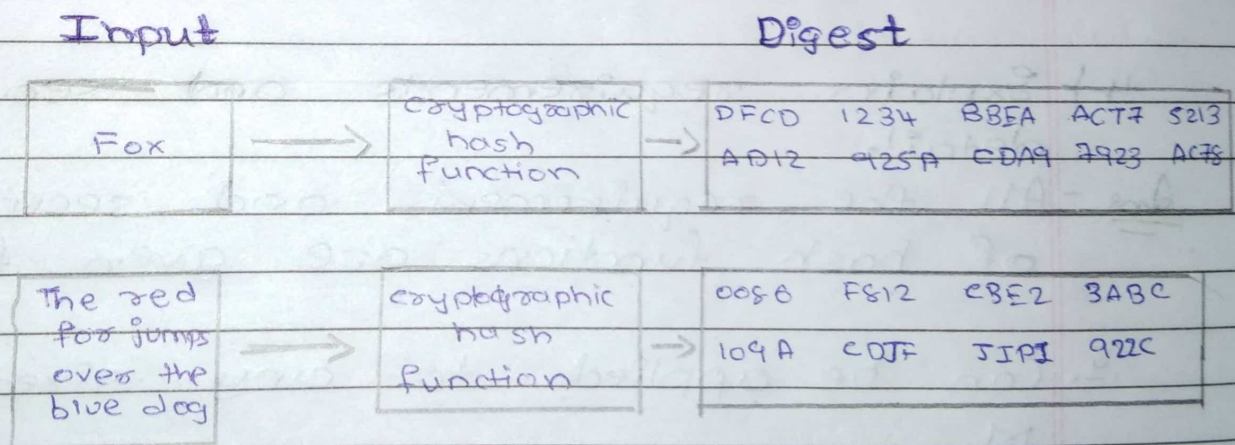 Input Digest
Fox
Cryptographic
hash
function
DFCD 1234 BBEA ACT7 5213
AD12 925A CDA9 7923 AC78
The red
for jumps
over the
blue dog
cryptographic
hash
function
0086 F812 CBE2 3ABC
109A CDJF JIPI 922C